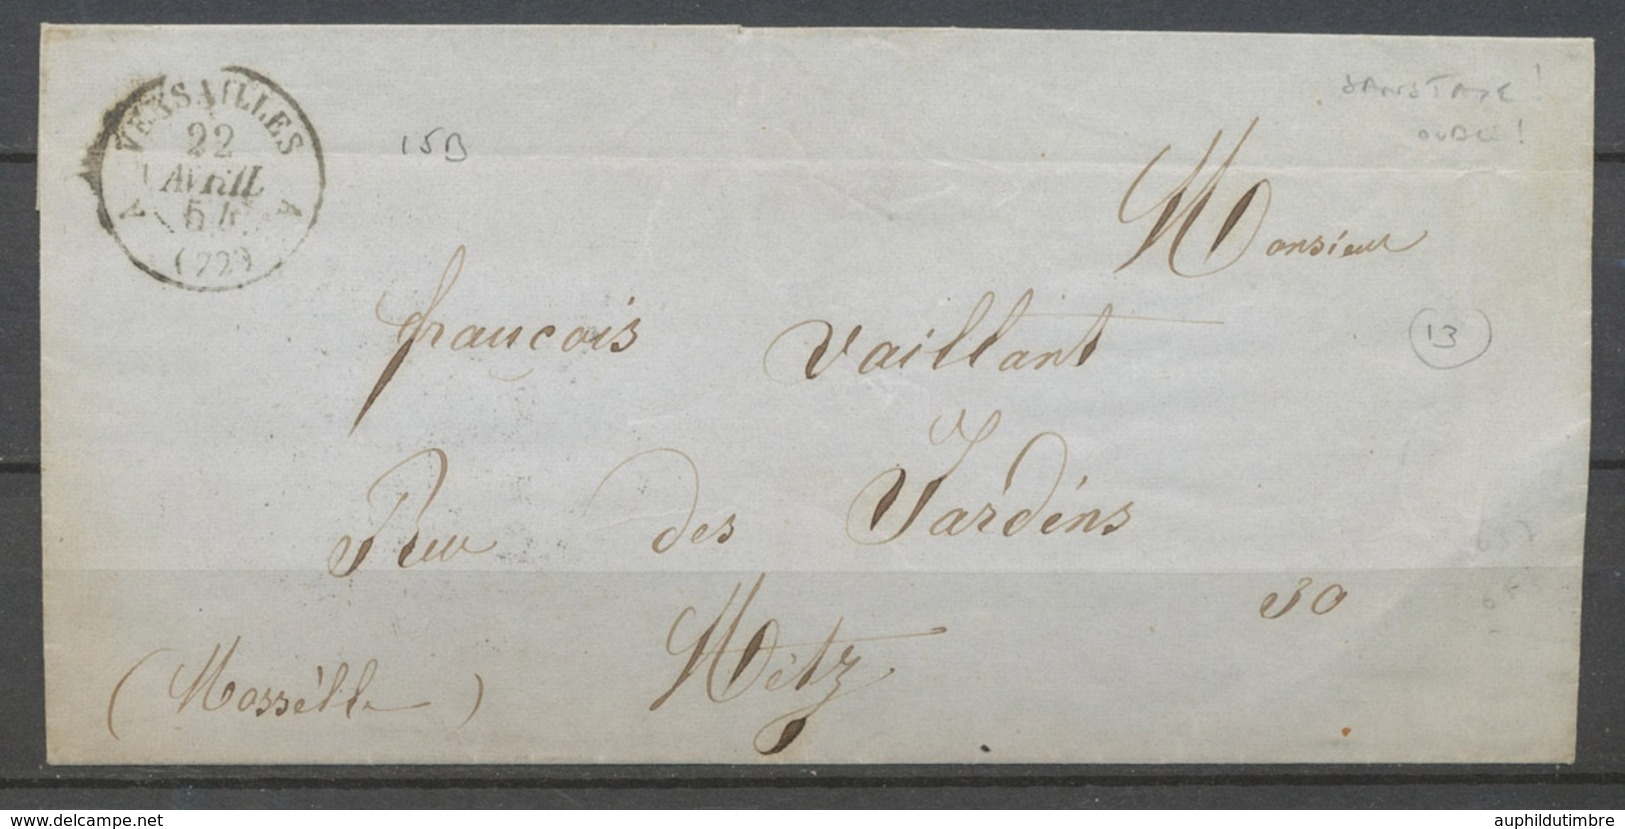 VERSAILLES
22
AVRIL
54
(72)
A A
15B
SANS TAXE!
OUBLI!
Monsieur
françois Vaillant
13
Rue des Jardins
30
Metz
(Mossélle)
www.delcampe.net
auphildutimbre